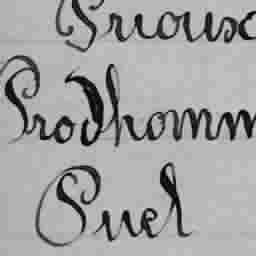 Prioux
Prodhomm
Puel